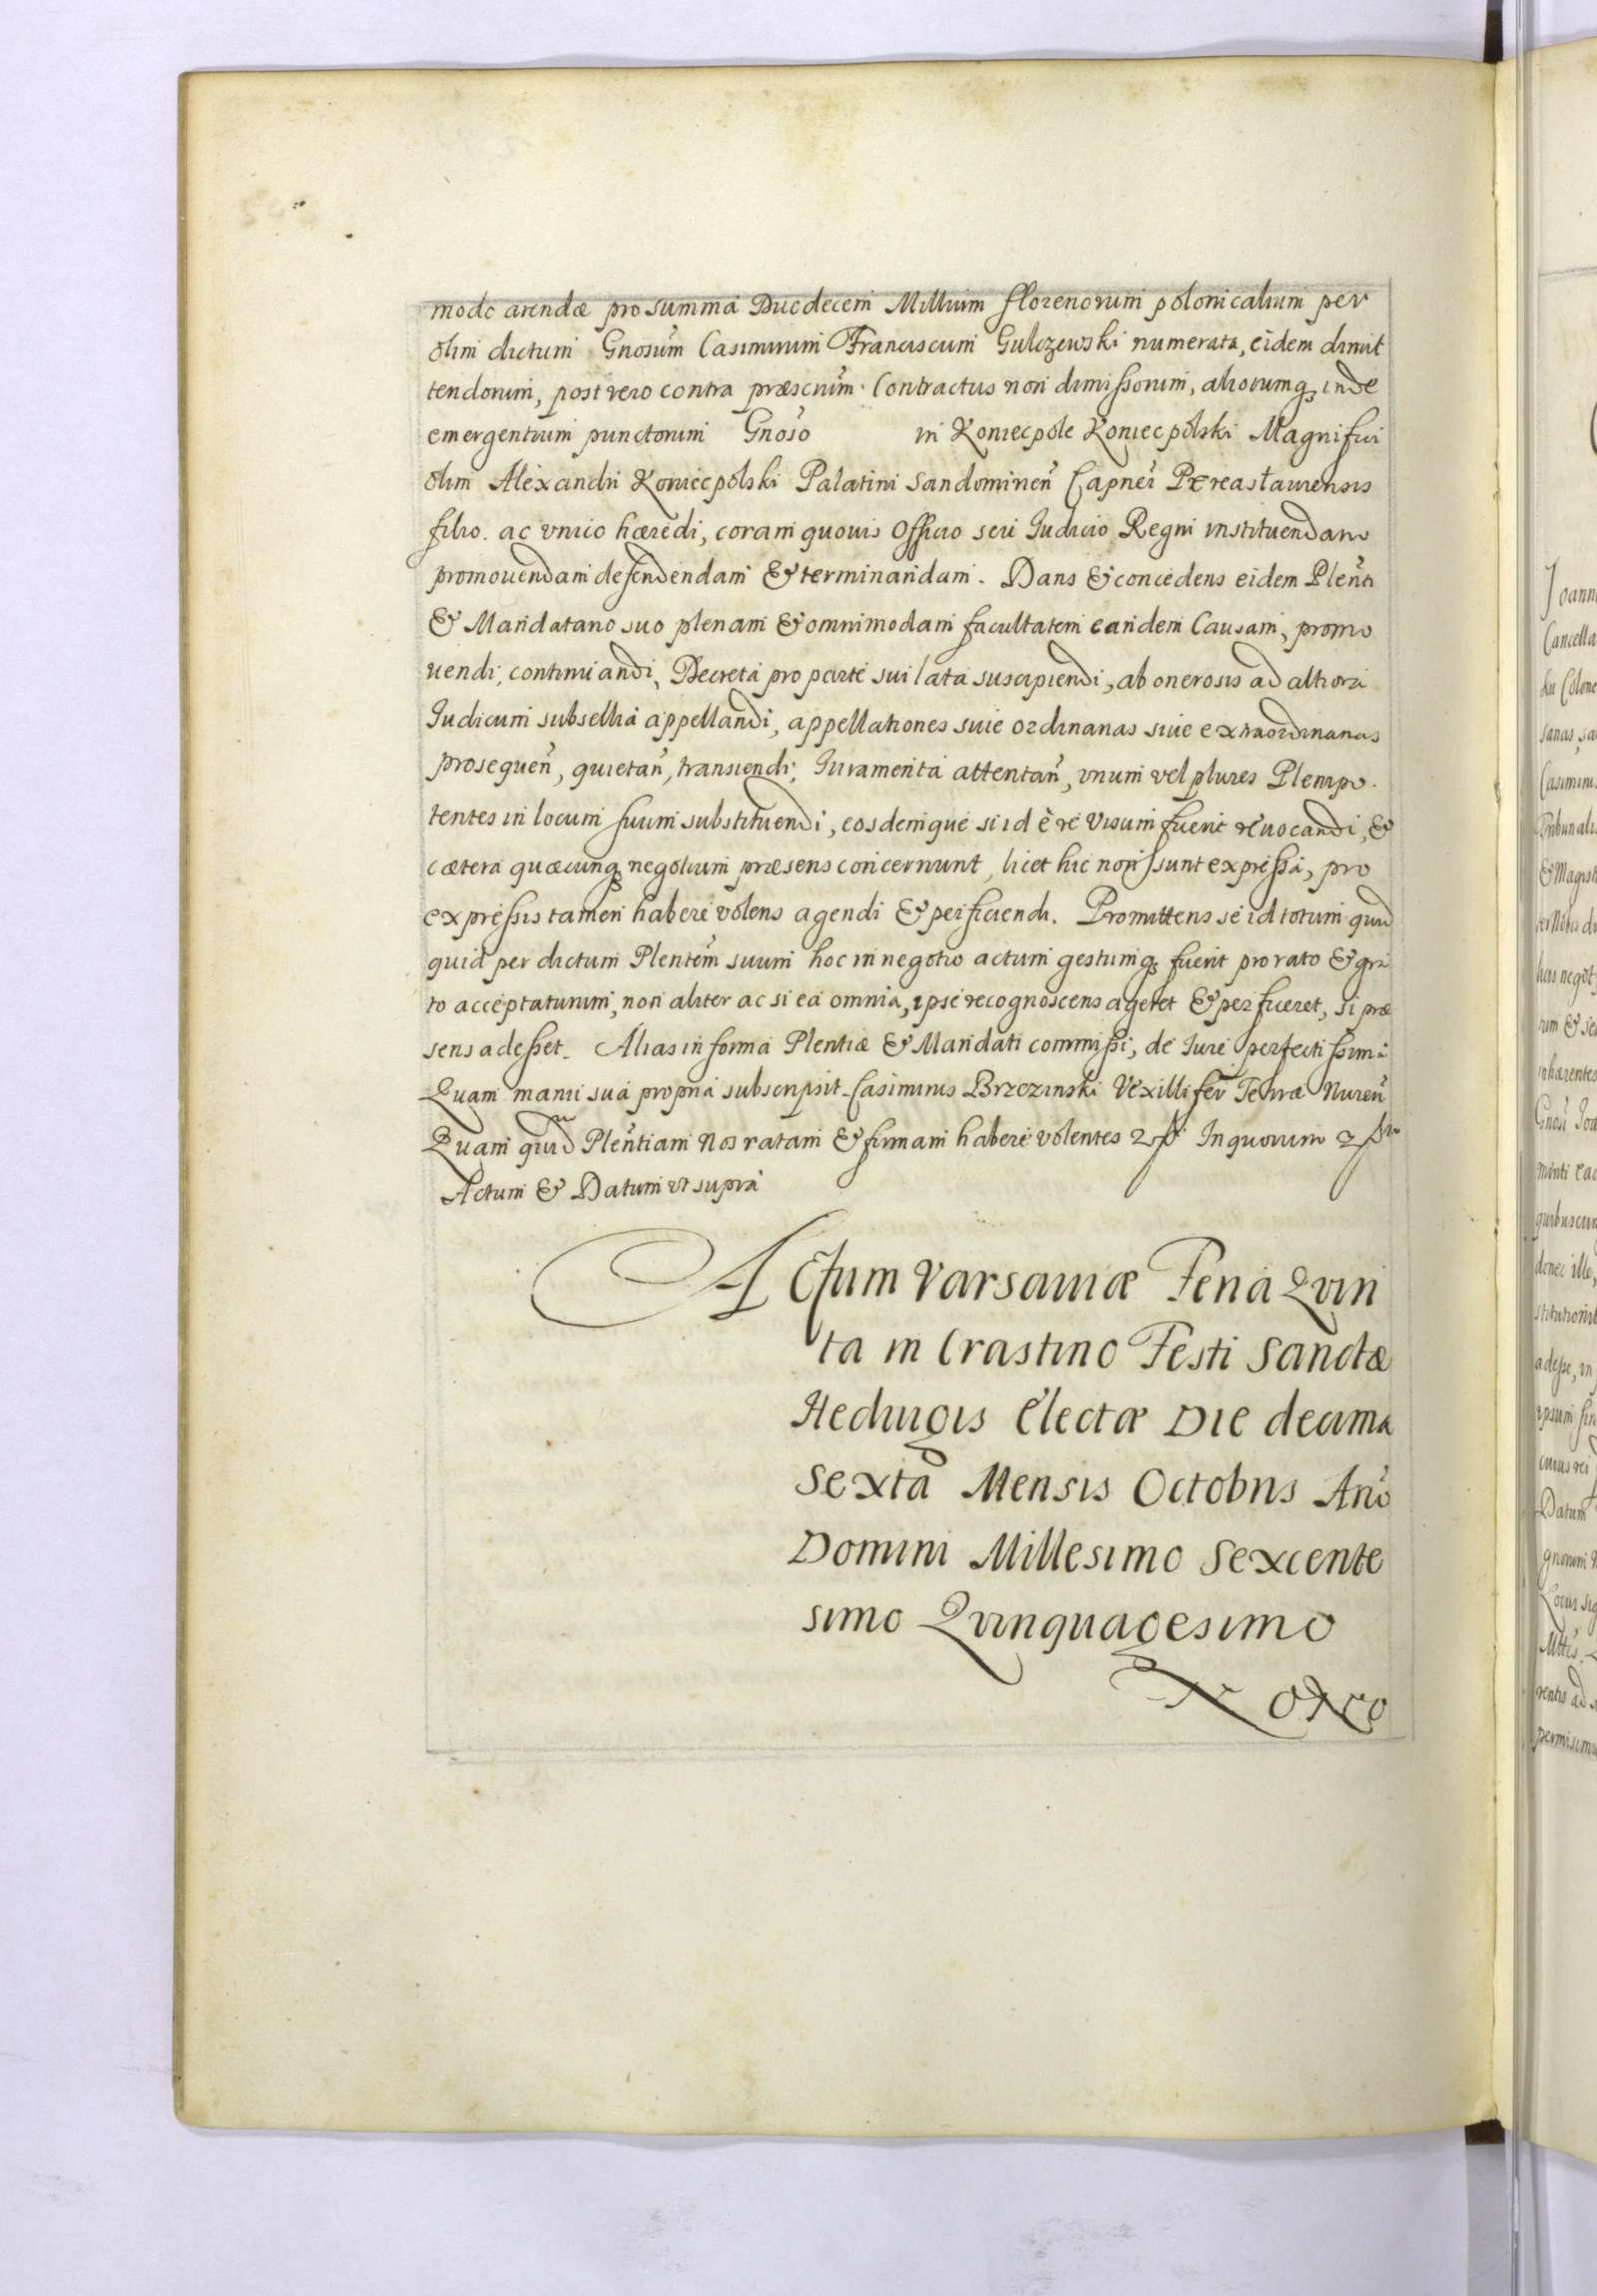 modo arendæ pro summa Duodecem Millium florenorum polonicalium per
olim dictum Gnosum Casimirum Franciscum Gulczewski numerata, eidem dimit
tendorum, post vero contra præscrum Contractus non dimissorum, aliorumq inde
emergentium punctorum Gnoso in Koniecpole Koniecpolski Magnifici
olim Alexandri Koniecpolski Palatini Sandominen Capnei Pereaslauiensis
filio. ac vnico hæredi, coram quouis Officio seu Iudicio Regni instituendam
promouendam defendendam & terminandam. Dans & concedens eidem Plenti
& Mandatario suo plenam & omnimodam facultatem eandem Causam, promo
uendi, continuandi, Decreta pro parte sui lata suscipiendi, ab onerosis ad altiora
Iudicum subsellia appellandi, appellationes siue ordinarias siue extraordinarias
prosequen, quietan, transiendi, Iuramenta attentan, vnum vel plures Plenipo
tentes in locum suum substituendi, eosdemque si id è re visum fuerit reuocandi, &
cætera quæcunq negotium præsens concernunt, licet hic non ssunt expressa, pro
expressis tamen habere volens agendi & perficiendi. Promittens se id totum quid
quid per dictum Plentem suum hoc in negotio actum gestumq fuerit pro rato & gra
to acceptaturum, non aliter ac si ea omnia, ipse recognoscens ageret & perficeret, si præ
sens adesset. Alias in forma Plentiæ & Mandati commissi, de Iure perfectissima
Quam manu sua propria subscripsit Casimirus Brzezinski Vexillifer Terræ Nuren
Quam quid Plentiam Nos ratam & firmam habere volentes In quorum
Actum & Datum vt supra
ACtum Varsauiæ Feria Qvin
ta in Crastino Festi Sanctæ
Heduigis Electæ Die decima
Sexta Mensis Octobris Año
Domini Millesimo Sexcente
simo Qvinquagesimo